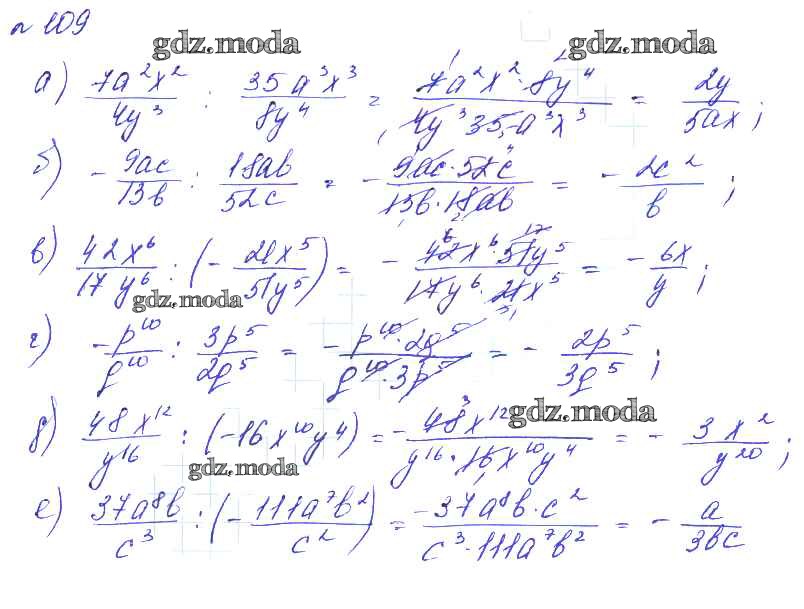 № 109
gdz.moda
а) 7a²x²/4y³ : 35a³x³/8y⁴ = 7a²x²·8y⁴/4y³35a³x³ = 2y/5ax;
б) -9ac/13b : 18ab/52c = -9ac·52c/13b·18ab = -2c²/b;
в) 42x⁶/17y⁶ : (-21x⁵/51y⁵) = -42x⁶·51y⁵/17y⁶·21x⁵ = -6x/y;
gdz.moda
г) -p¹⁰/q¹⁰ : 3p⁵/2q⁵ = -p¹⁰·2q⁵/q¹⁰·3p⁵ = -2p⁵/3q⁵;
gdz.moda
д) 48x¹²/y¹⁶ : (-16x¹⁰y4) = -48x¹²/y¹⁶·16x¹⁰y⁴ = -3x²/y²⁰;
gdz.moda
е) 37a⁸b/c³ : (-111a⁷b²/c²) = -37a⁸b·c²/c³·111a⁷b² = -a/3bc